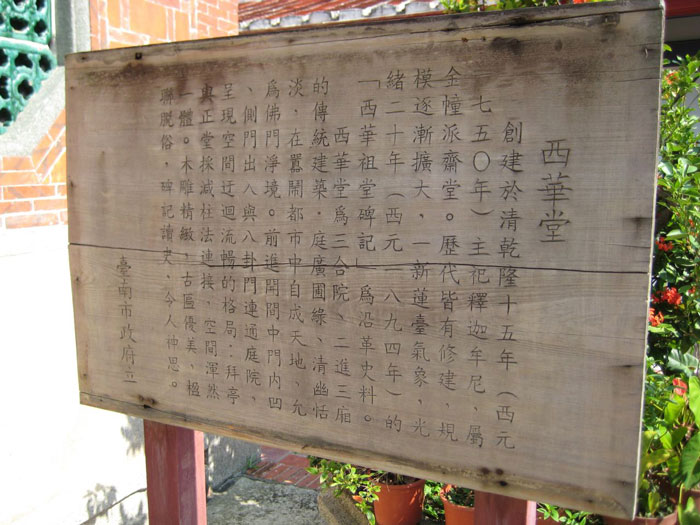 西華堂
創建於清乾隆十五年（西元
七五〇年）主祀釋迦牟尼、屬
金幢派齋堂。歷代皆有修建、規
模逐漸擴大、一新蓮臺氣象、光
緒二十年（西元一八九四年）的
「西華祖堂碑記」為沿革史料。
西華堂為二合院、二進三廂
的傳統建築．庭廣圃綠、清幽恬
淡、在囂鬧都市中自成天地、允
為佛門淨境。前進開間中門內凹
、側門出入與八卦門連通庭院、
呈現空間迂迴流暢的格局：拜亭
與正堂採減柱法連接、空間渾然
一體。木雕精緻、古匾優美、楹
聯脫俗、碑記讀史、令人神思。
臺南市政府立